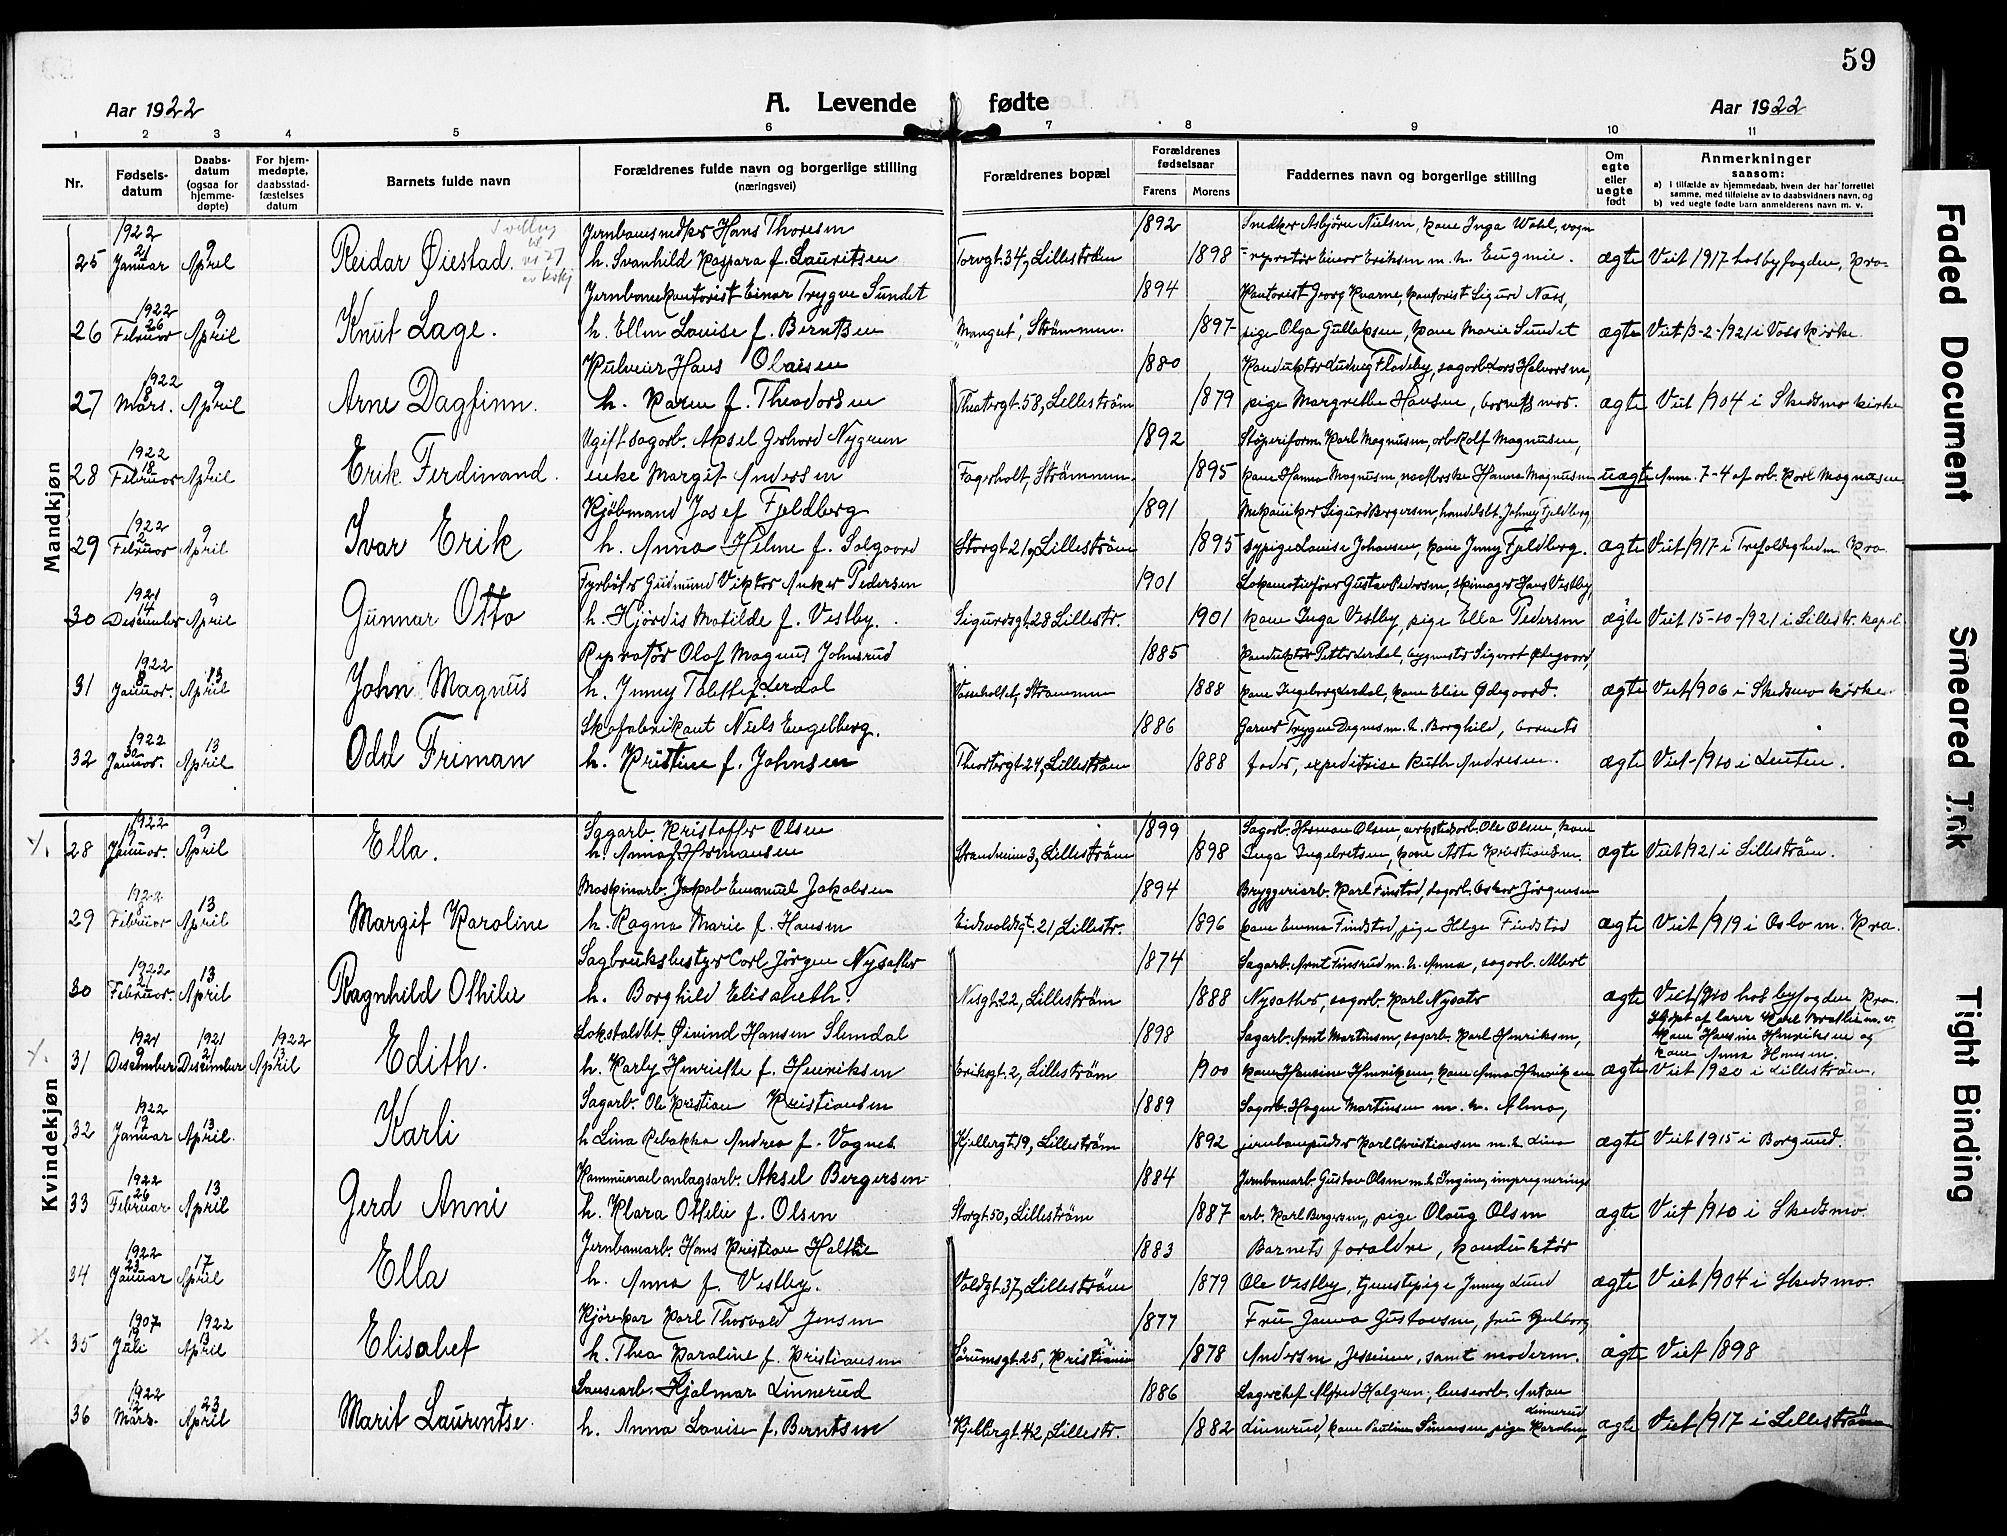 59
Aar 1922 A. Levende fødte Aar 1922
1 2 3 4 5 6 7 8 9 10 11
Nr. Fødselsdatum Daabsdatum (ogsaa for hjemmedøpte) For hjemmedøpte, daabsstadfæstelses datum Barnets fulde navn Forældrenes fulde navn og borgerlige stilling (næringsvei) Forældrenes bopæl Forældrenes fødselsaar Farens Morens Faddernes navn og borgerlige stilling Om egte eller uegte født Anmerkninger saasom: a) i tilfælde av hjemmedaab, hvem der har forrettet samme, med tilføielse av to daabsvidners navn, og b) ved uegte fødte barn anmelderens navn m. v.
Mandkjøn
1922 Hans Thoresen 1892 Snedker Asbjørn Nielsen, kone Inga Wahl, vogn
25 21 Januar 9 April Reidar Øiestad. h. Svanhild Kaspara f. Lauritsen Torvgt. 34, Lillestrøm 1898 -reparatør Einar Eriksen m. h. Eugenie. ægte Viet 1917 hos byfogden, Kra-
1922 Jernbanekontorist Einar Trygve Sundet 1894 Kontorist Georg Kvarne, kontorist Sigurd Næss,
26 26 Februar 9 April Knut Lage. h. Ellen Louise f. Berntsen Strømmen. 1897 pige Olga Gulleksen, kone Marie Sundet ægte Viet 13-2-1921 i Voss kirke
1922 Hans Olaisen 1880 Konduktør Ludvig Flodeby, sagarb. Lars Halvorsen,
27 8 Mars. 9 April Arne Dagfinn. h. Karen f. Theodorsen Theatergt. 58, Lillestrøm 1879 pige Margrethe Hansen, barnets mor. ægte Viet 1904 i Skedsmo kirke
1922 Ugift sagarb. Aksel Gerhard Nygren 1892 Støperiform. Karl Magnusen, arb. Rolf Magnusen,
28 18 Februar 9 April Erik Ferdinand. enke Margit Andersen Fagerholt, Strømmen. 1895 kone Hanna Magnusen, Hanna Magnusen uægte Anm. 7-4 af arb. Karl Magnusen
1922 Kjøbmand Josef Fjeldberg 1891 Mekaniker Sigurd Borgersen, handelsbt. Johny Fjeldberg,
29 2 Februar 9 April Ivar Erik h. Anna Helene f. Solgaard Storgt. 21, Lillestrøm 1895 sypige Louise Johansen, kone Jenny Fjeldberg. ægte Viet 1917 i Trefoldigheden Kra
1921 Fyrbøter Gudmund Viktor Anker Pedersen 1901 Lokomotivfører Gustav Pedersen, skimager Hans Vestby,
30 14 Desember 9 April Gunnar Otto h. Hjørdis Matilde f. Vestby. Sigurdsgt. 28 Lillestr. 1901 kone Inga Vestby, pige Ella Pedersen ægte Viet 15-10-1921 i Lillestr. kapel
1922 Reparatør Olaf Magnus Johnsrud 1885 Konduktør Petter Lerdal, bygmester Sigvart Ødegaard
31 8 Januar. 13 April John Magnus h. Jenny f. Lerdal Strømmen 1888 kone Ingeborg Lerdal, kone Elise Ødegaard. ægte Viet 1906 i Skedsmo kirke
1922 Skofabrikant Niels Engelberg. 1886 Trygve m. h. Borghild, barnets
32 30 Januar. 13 April Odd Friman h. Kristine f. Johnsen Theatergt. 24, Lillestrøm 1888 fader, expeditrise Ruth Andresen. ægte Viet 1910 i Løiten.
Kvindekjøn
1922 Sagarb. Kristoffer Olsen 1899 Sagarb. Herman Olsen, Ole Olsen, kone
28 19 Januar. 9 April Ella. h. Anna f. Hermansen Strandveien 3, Lillestrøm 1898 Inga Ingebretsen, kone Asta Kristiansen. ægte Viet 1921 i Lillestrøm.
1922 Maskinarb. Jakob Emanuel Jakobsen 1894 Bryggeriarb. Karl Finstad, sagarb. Oskar Jørgensen
29 Februar 13 April Margit Karoline h. Ragna Marie f. Hansen Eidsvoldsgt. 21, Lillestr. 1896 kone Emma Findstad, pige Helga Findstad ægte Viet 1919 i Oslo m. Kra.
1922 Sagbruksbestyrer Carl Jørgen Nysæther 1874 Sagarb. Arnt Finsrud m. h. Anna, sagarb. Albert
30 21 Februar. 13 April Ragnhild Othilie h. Borghild Elisabeth. Nesgt. 22, Lillestrøm 1888 Nysæther, sagarb. Karl Nysæter ægte Viet 1910 hos byfogden Kra.
1921 1921 1922 Lokstaldbt. Øivind Hansen Slemdal 1898 Sagarb. Arnt Martinsen, sagarb. Karl Henriksen, Hjdøpt af lærer Karl Brathe m. v. kone Hansine Henriksen og
31 9 Desember 21 Desember 13 April Edith. h. Karly Henriette f. Henriksen Eriksgt. 2, Lillestrøm 1900 kone Hansine Henriksen, kone Anna Henriksen ægte kone Anna Hansen. Viet 1920 i Lillestrøm.
1922 Sagarb. Ole Kristian Kristiansen 1889 Sagarb. Hagen Martinsen m. h. Alma,
32 17 Januar 13 April. Karli h. Lina Rebekka Andrea f. Vagnes Kjellergt. 19, Lillestrøm 1892 jernbanepudser Karl Christiansen m. h. Lina ægte Viet 1915 i Borgund.
1922 Kommunal anlægsarb. Aksel Bergersen 1884 Jernbanearb. Gustav Olsen m. h. Ingine, impregnerings
33 26 Februar 13 April Gerd Anni h. Klara Othilie f. Olsen Storgt. 50, Lillestrøm 1887 arb. Karl Bergersen, pige Olaug Olsen ægte Viet 1910 i Skedsmo.
1922 Jernbanearb. Hans Kristian Holthe 1883 Barnets forældre, konduktør
34 23 Januar 17 April Ella h. Anna f. Vestby. Voldgt. 37, Lillestrøm 1879 Ole Vestby, tjenestepige Jenny Lund ægte Viet 1904 i Skedsmo.
1907 1922 Kjørekar Karl Thorvald Jensen 1877 Fru Janna Gustavsen, fru Gulborg
35 19 Juli 13 April Elisabet h. Thea Karoline f. Kristiansen Sørumsgt. 25, Kristiania 1878 Andersen, samt moderen. ægte Viet 1898
1922 Hjalmar Linnerud 1886 Lagerchef Alfred Halgren, Anton
36 12 Mars. 23 April Marit Laurentse. h. Anna Lovise f. Berntsen Kjellergt. 42, Lillestr. 1882 Linnerud, kone Pauline Simensen, pige Karoline Linnerud ægte Viet 1917 i Lillestrøm
Faded Document
Smeared Ink
Tight Binding